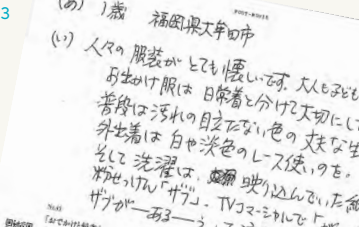 3
(あ) 1歳 福岡県大牟田市
(い) 人々の服装がとても懐しいです。大人も子ども
お出かけ服は日常着と分けて大切にし
普段は汚れの目立たない色の丈夫な生
外出着は白や淡色のレース使いのを。
そして洗濯は、映り込んでいた
粉せっけん「ザブ」。TVコマーシャルで「
ザブがーある3ー